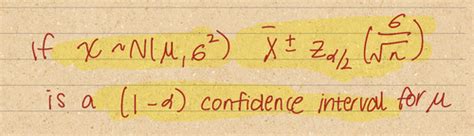 If x ~ N(μ, σ²) x̄ ± z_{α/2} (σ/√n)
is a (1-α) confidence interval for μ